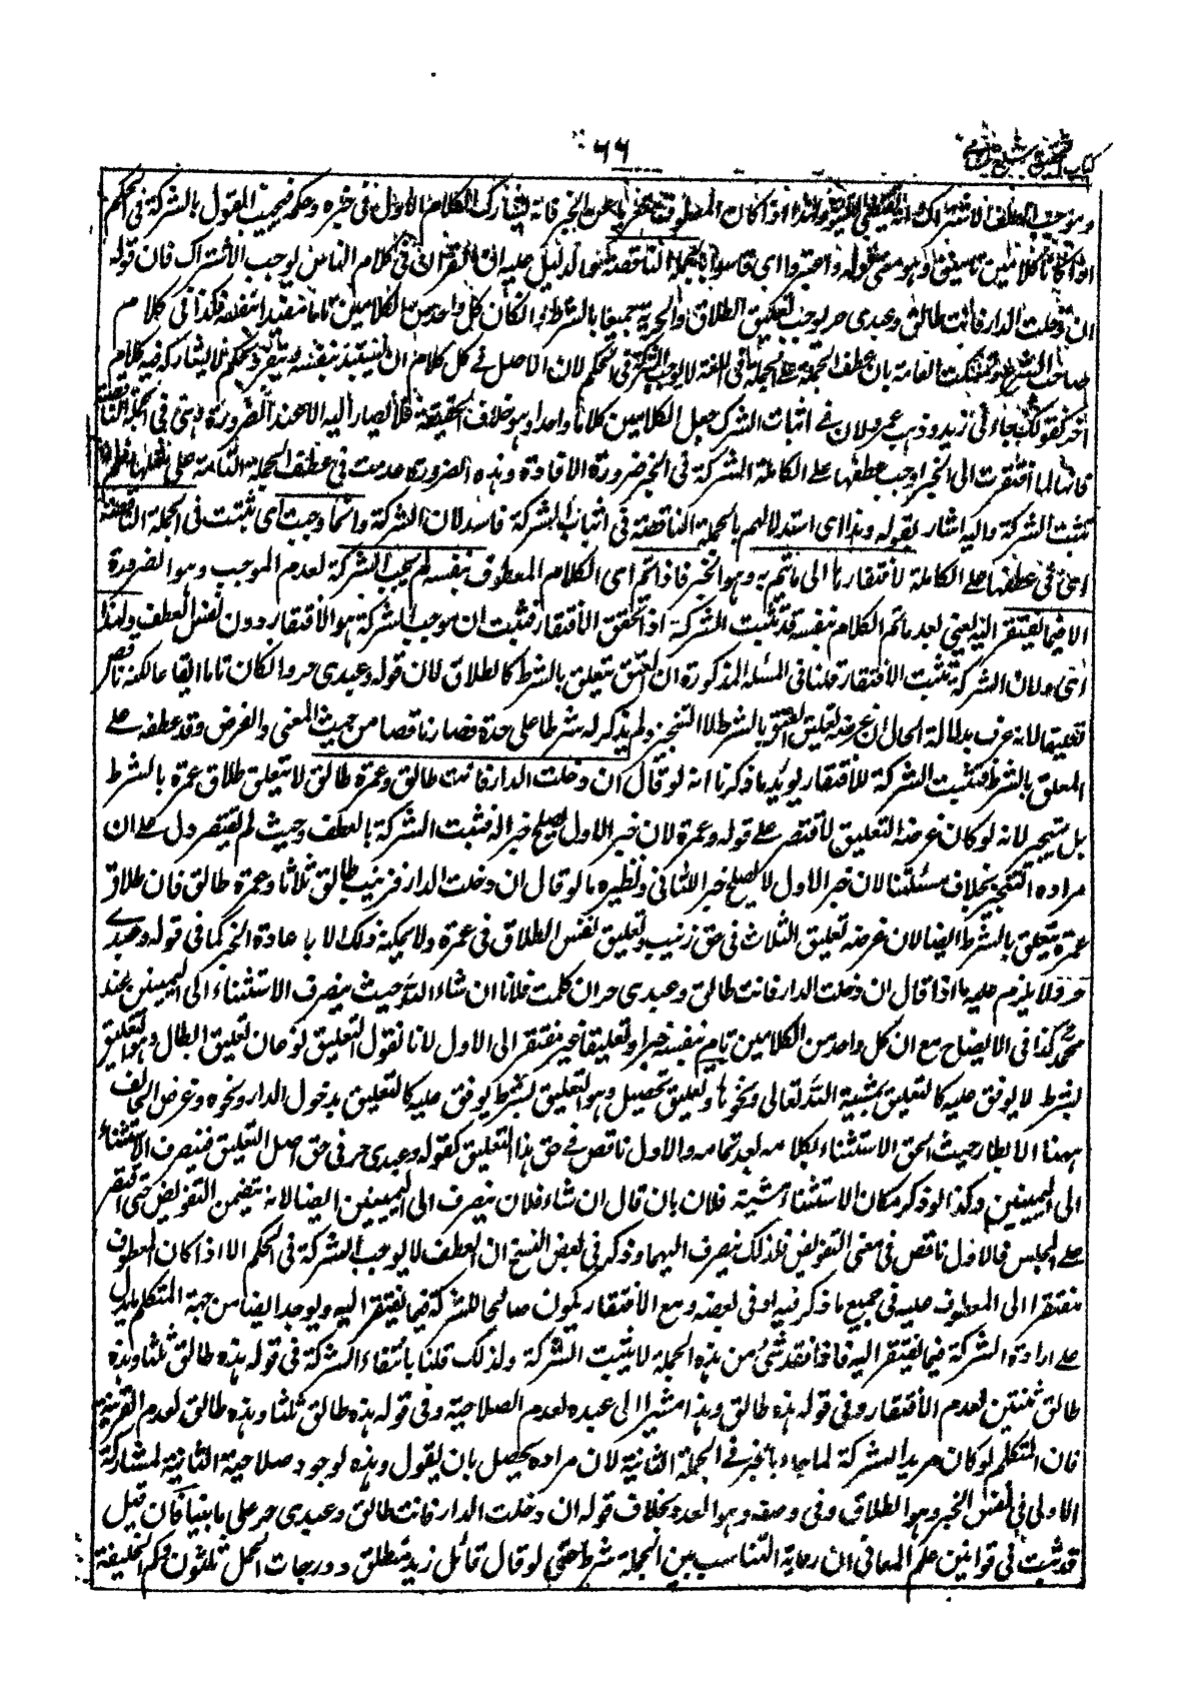 ٦٦
كتاب التحقيق شرح
وموجب العطف الاشتراك انه يقتضى ولهذا اذا كان المعطوف متعريا عن الخبر فانه يشارك الكلام الاول فى خبره وحكمه فيجب القول بالشركة فى الحكم
اذا كانا كلامين تامين وهو معنى قوله واعتبروا اى قاسوا بالجملة الناقصة لدليل عليه ان القران فى كلام الناس يوجب الاشتراك فان قوله
ان دخلت الدار فانت طالق وعبدى حر يوجب تعليق الطلاق والحرية جميعا بالشرط وان كان كل واحد من الكلامين تاما مفيدا بنفسه فكذا فى كلام
صاحب الشرع وتمسكت العامة بان عطف الجملة على الجملة فى اللغة لا يوجب الشركة فى الحكم لان الاصل فى كل كلام ان يستبد بنفسه ويتفرد بحكمه لا يشاركه فيه كلام
اخر كقولك جاءنى زيد وذهب عمرو ولان فى اثبات الشركة جعل الكلامين كلاما واحدا وهو خلاف الحقيقة فلا يصار اليه الا عند الضرورة وهى فى الجملة الناقصة
فانها لما افتقرت الى الخبر اوجب عطفها على الكاملة الشركة فى الخبر ضرورة الافادة وهذه الضرورة عدمت فى عطف الجملة التامة على مثلها فلم
تثبت الشركة واليه اشار بقوله وهذا اى استدلالهم بالجملة الناقصة فى اثبات الشركة فاسد لان الشركة وانما وجبت اى تثبت فى الجملة الناقصة
اى فى عطفها على الكاملة لافتقارها الى ما تتم به وهو الخبر فاذا تم اى الكلام المعطوف بنفسه لم يجب الشركة لعدم الموجب وهو الضرورة
الا فيما يفتقر اليه يعنى بعد ما تم الكلام بنفسه قد تثبت الشركة اذا تحقق الافتقار فثبت ان موجب الشركة هو الافتقار دون نفس العطف ولهذا
اى ولان الشركة تثبت بالافتقار قلنا فى المسئلة المذكورة ان العتق يتعلق بالشرط كالطلاق لان قوله وعبدى حر وان كان تاما ايقاعا لكنه ناقص
تعليقا لانه عرف بدلالة الحال ان غرضه تعليق العتق بالشرط لا التنجيز ولم يذكر له شرطا على حدة فصار ناقصا من حيث المعنى والغرض وقد عطفه على
المعلق بالشرط فتثبت الشركة للافتقار يؤيد ما ذكرنا انه لو قال ان دخلت الدار فانت طالق وعمرة طالق لا يتعلق طلاق عمرة بالشرط
بل تنجيز لانه لو كان غرضه التعليق لاقتصر على قوله وعمرة لان خبر الاول يصلح خبرا له فثبت الشركة بالعطف وحيث لم يقتصر دل على ان
مراده التنجيز بخلاف مسئلتنا لان خبر الاول لا يصلح خبر الثانى ونظيره ما لو قال ان دخلت الدار فزينب طالق ثلاثا وعمرة طالق فان طلاق
عمرة يتعلق بالشرط ايضا لان غرضه تعليق الثلاث فى حق زينب وتعليق نفس الطلاق فى عمرة ولا يمكنه ذلك الا باعادة الخبر كما فى قوله وعبدى
حر ولا يلزم عليه ما اذا قال ان دخلت الدار فانت طالق وعبدى حر ان كلمت فلانا ان شاء الله حيث ينصرف الاستثناء الى اليمينين عند
محمد كذا فى الايضاح مع ان كل واحد من الكلامين تام بنفسه خبرا وتعليقا غير مفتقر الى الاول لانا نقول التعليق نوعان تعليق ابطال وهو التعليق
بشرط لا يوقف عليه كالتعليق بمشية الله تعالى ونحوها وتعليق تحصيل وهو التعليق بشرط يوقف عليه كالتعليق بدخول الدار ونحوه وغرض الحالف
ههنا الابطال حيث الحق الاستثناء بكلامه بعد تمامه والاول ناقص فى حق هذا التعليق كقوله وعبدى حر فى حق اصل التعليق فينصرف الاستثناء
الى اليمينين وكذا لو ذكر مكان الاستثناء مشية فلان بان قال ان شاء فلان ينصرف الى اليمينين ايضا لانه يتضمن التفويض حتى اقتصر
على المجلس فالاول ناقص فى معنى التفويض فلذلك ينصرف اليهما وذكر فى بعض النسخ ان العطف لا يوجب الشركة فى الحكم الا اذا كان المعطوف
مفتقرا الى المعطوف عليه فى جميع ما ذكر فيه او فى بعضه ومع الافتقار يكون صالحا للشركة فيما يفتقر اليه ويوجد ايضا من جهة المتكلم ما يدل
على ارادة الشركة فيما يفتقر اليه فاذا فقد شئ من هذه الجملة لا يثبت الشركة ولذلك قلنا بانتفاء الشركة فى قوله هذه طالق ثلثا وهذه
طالق ثنتين لعدم الافتقار وفى قوله هذه طالق وهذا مشيرا الى عبده لعدم الصلاحية وفى قوله هذه طالق ثلثا وهذه طالق لعدم القرينة
فان المتكلم لو كان مريدا للشركة لما جاء بالخبر فى الجملة الثانية لان مراده يحصل بان يقول وهذه لوجود صلاحية الثانية لمشاركة
الاولى فى نفس الخبر وهو الطلاق وفى وصفه وهو العدد بخلاف قوله ان دخلت الدار فانت طالق وعبدى حر على ما بينا فان قيل
قد ثبت فى قوانين علم المعانى ان رعاية التناسب بين الجملة شرط حتى لو قال قائل زيد منطلق ودرجات الحمل ثلثون وكم الخليفة